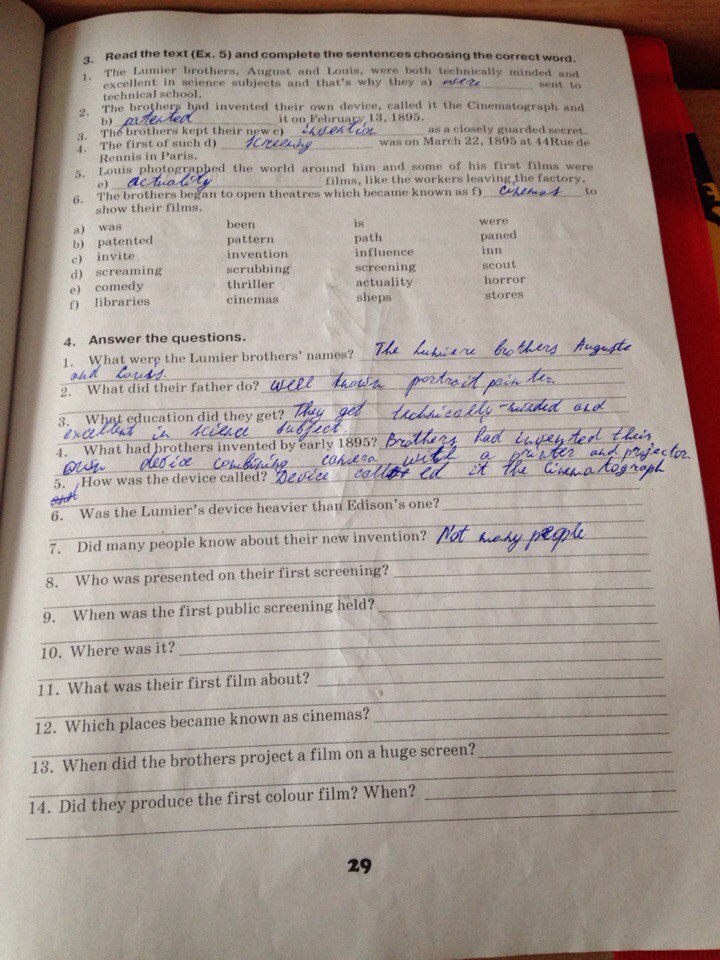 3. Read the text (Ex. 5) and complete the sentences choosing the correct word.
1. The Lumier brothers, August and Louis, were both technically minded and
excellent in science subjects and that's why they a) were sent to
technical school.
2. The brothers had invented their own device, called it the Cinematograph and
b) patented it on February 13, 1895.
3. The brothers kept their new c) invention as a closely guarded secret.
4. The first of such d) screening was on March 22, 1895 at 44Rue de
Rennis in Paris.
5. Louis photographed the world around him and some of his first films were
e) actuality films, like the workers leaving the factory.
6. The brothers began to open theatres which became known as f) cinemas to
show their films.
a) was been is were
b) patented pattern path paned
c) invite invention influence inn
d) screaming scrubbing screening scout
e) comedy thriller actuality horror
f) libraries cinemas sheps stores
4. Answer the questions.
1. What were the Lumier brothers' names? The Lumiere brothers Auguste
and Louis.
2. What did their father do? well known portrait painter.
3. What education did they get? They get technically-minded and
excellent in science subject.
4. What had brothers invented by early 1895? Brothers had invented their
own device combining camera with a printer and projector
5. How was the device called? Device called it the Cinematograph
6. Was the Lumier's device heavier than Edison's one?
7. Did many people know about their new invention? Not many people
8. Who was presented on their first screening?
9. When was the first public screening held?
10. Where was it?
11. What was their first film about?
12. Which places became known as cinemas?
13. When did the brothers project a film on a huge screen?
14. Did they produce the first colour film? When?
29